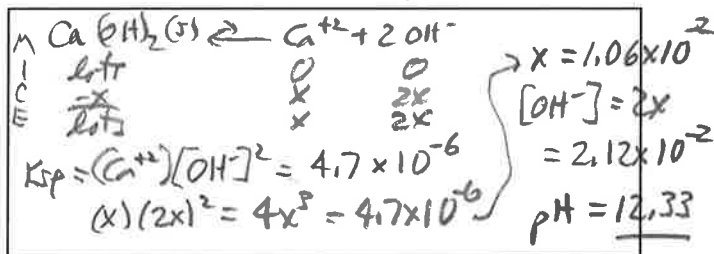 M Ca(OH)₂(s) ⇌ Ca⁺² + 2 OH⁻
I lots 0 0
C -x x 2x
E lots x 2x
Ksp = (Ca⁺²)[OH⁻]² = 4.7 x 10⁻⁶
(x)(2x)² = 4x³ = 4.7x10⁻⁶
x = 1.06x10⁻²
[OH⁻] = 2x
= 2.12x10⁻²
pH = 12.33